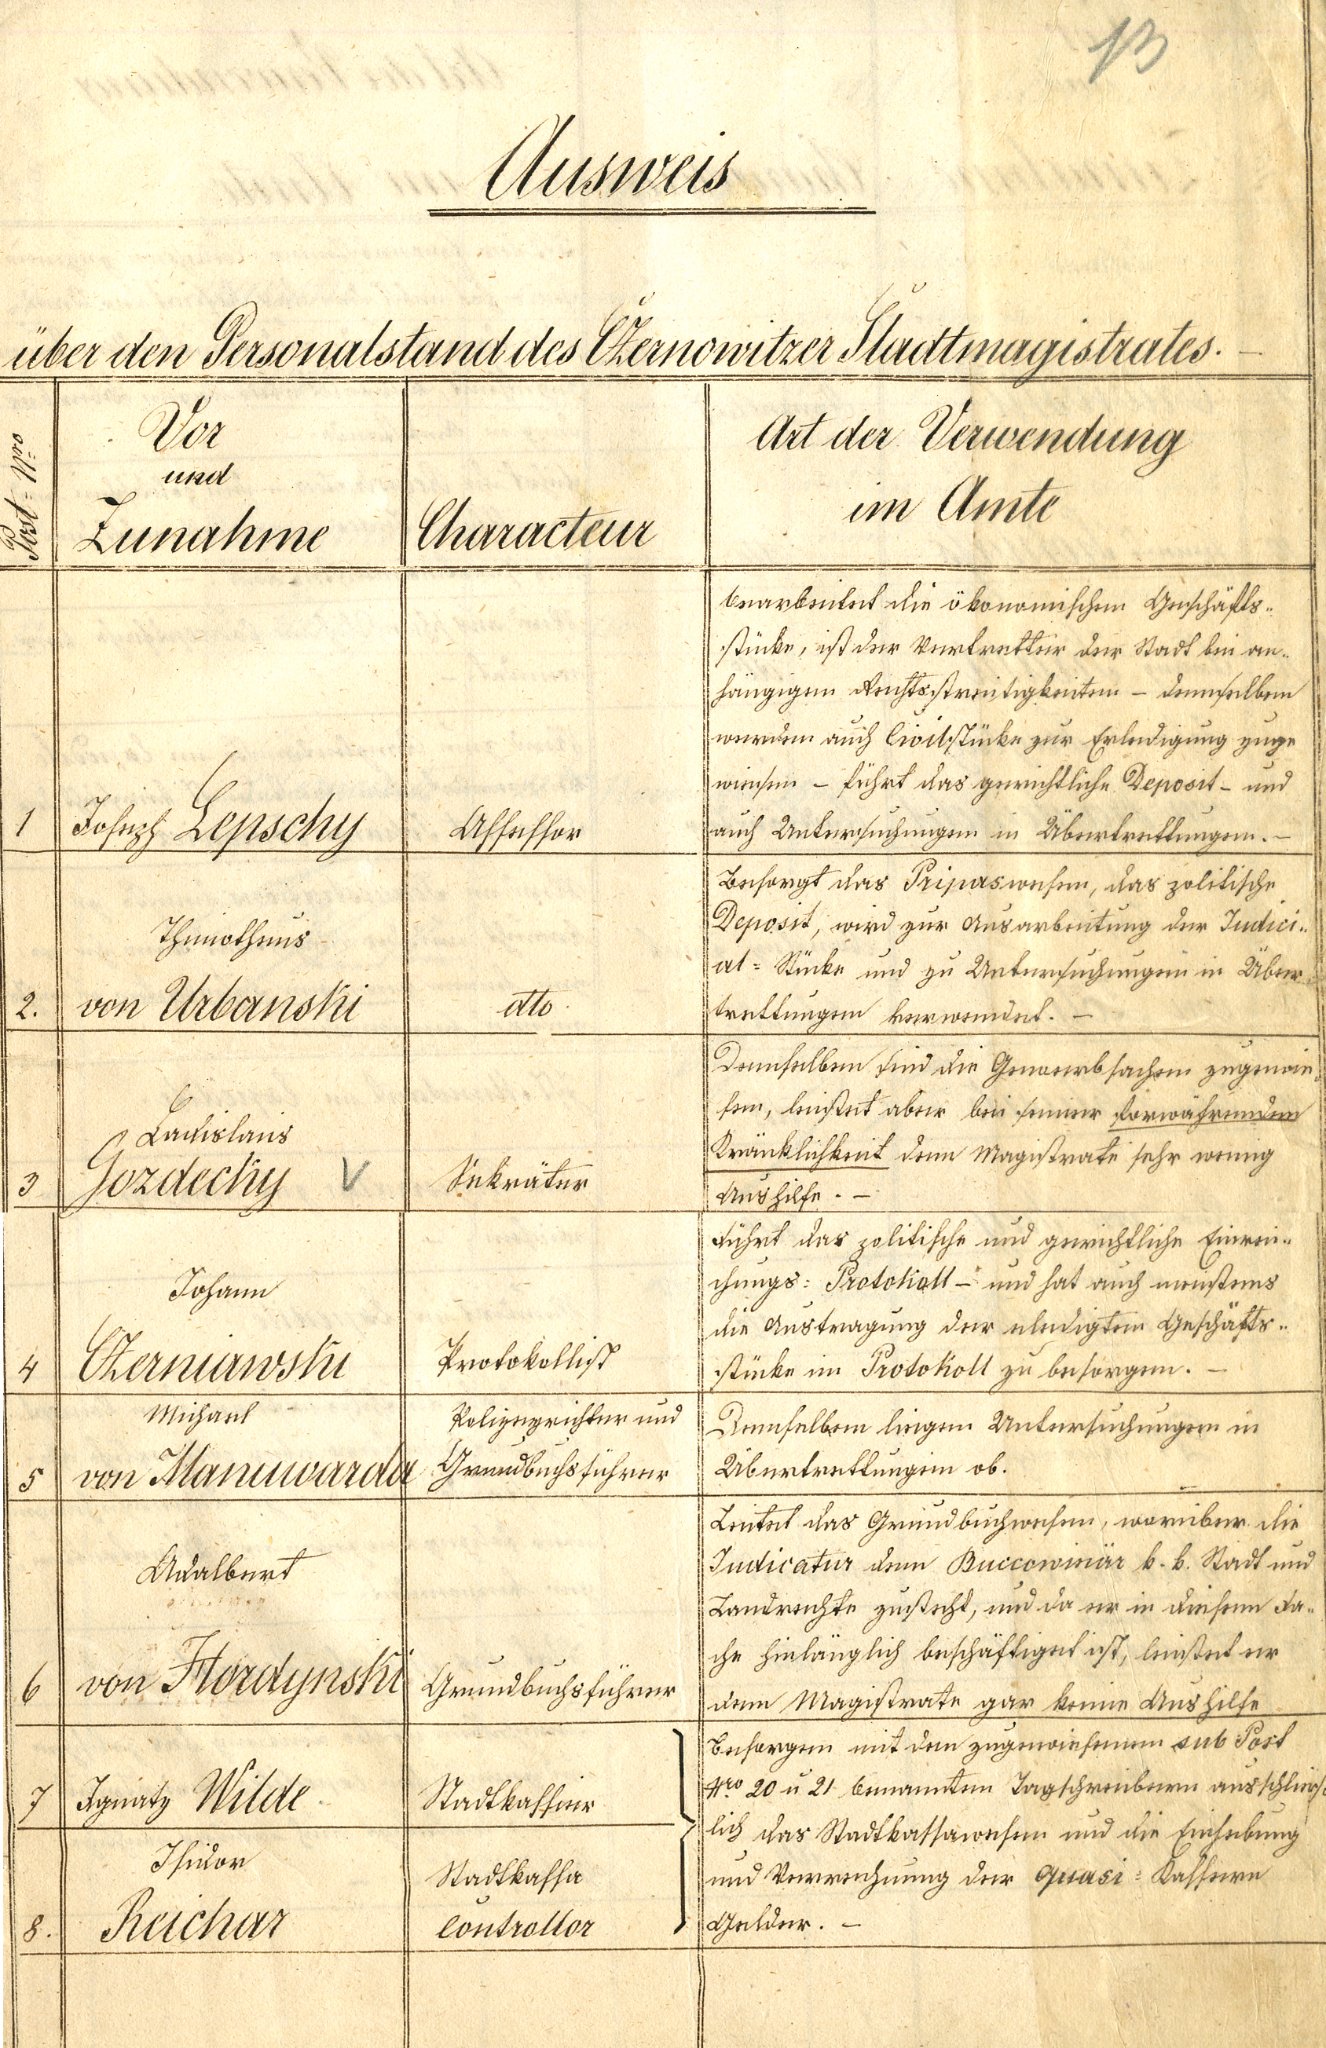 13
Ausweis
über den Personalstand des Czernowitzer Stadtmagistrates. —
Post-Nro
Vor
und
Zunahme
Characteur
Art der Verwendung
im Amte
1
Joseph Lepschy
Assessor
bearbeitet die ökonomischen Geschäfts-
stücke, ist der Vertretter der Stadt bei an-
hängigen Rechtsstreitigkeiten – demselben
werden auch Civilstücke zur Erledigung zuge
wiesen – führt das gerichtliche Deposit – und
auch Untersuchungen in Übertrettungen. –
2.
Thimotheus
von Urbanski
dto
Besorgt das Pripaswesen, das politische
Deposit, wird zur Ausarbeitung der Judici-
al= Stücke und zu Untersuchungen in Über-
trettungen verwendet. –
3
Ladislaus
Gozdecky V
Sekräter
Demselben sind die Gewerbsachen zugewie-
sen, leistet aber bei seiner forwährenden
Kränklichkeit dem Magistrate sehr wenig
Aushilfe. –
4
Johann
Czerniawski
Protokollist
Führt das politische und gerichtliche Einrei-
chungs= Protokoll – und hat auch meistens
die Austragung der erledigten Geschäfts-
stücke im Protokoll zu besorgen. –
5
Michael
von Manuwarda
Polizeyrichter und
Grundbuchsführer
Demselben liegen Untersuchungen in
Übertrettungen ob.
6
Adalbert
von Hordynski
Grundbuchsführer
Leitet das Grundbuchwesen, worüber die
Judicatur dem Buccowinär k. k. Stadt und
Landrechte zusteht, und da er in diesem Fa-
che hinlänglich beschäftiget ist, leistet er
dem Magistrate gar keine Aushilfe
7
Ignatz Wilde
Stadtkassier
Besorgen mit den zugewiesenen sub Post
Nro 20 u 21 benannten Tagschreibern ausschliess-
lich das Stadtkassawesen und die Einhebung
und Verrechnung der quasi= Casserne
Gelder. –
8.
Isidor
Reichar
Stadtkassa
Controllor